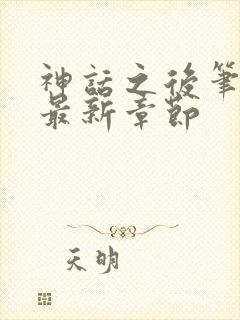 神話之後筆
最新章節
天明